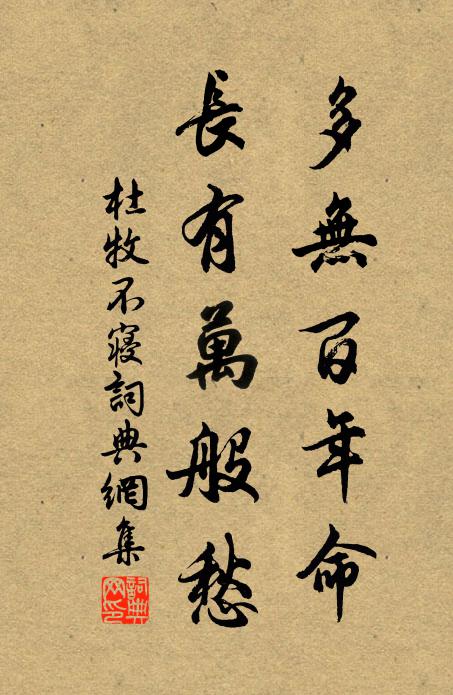 多無百年命
長有萬般愁
杜牧不寢詞典網集
詞典网印